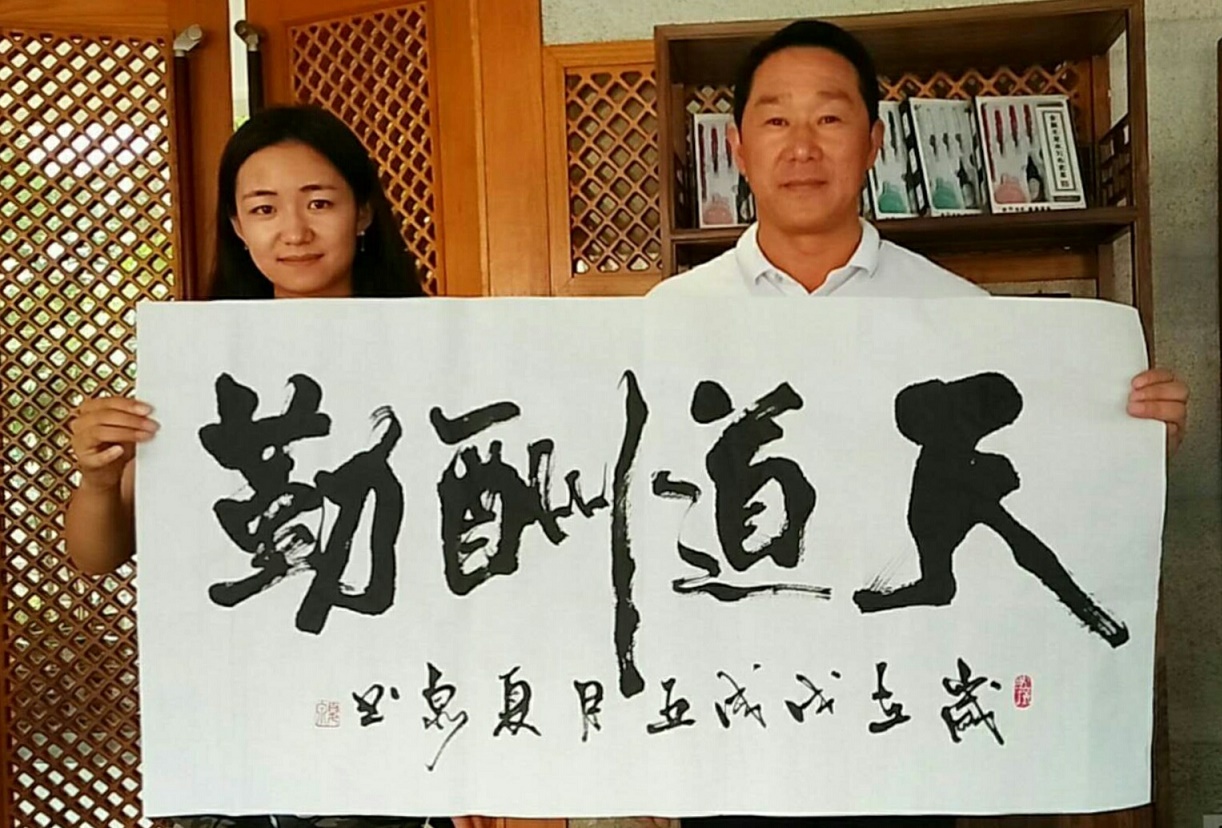 天道酬勤
歲在戊戌五月夏泉书